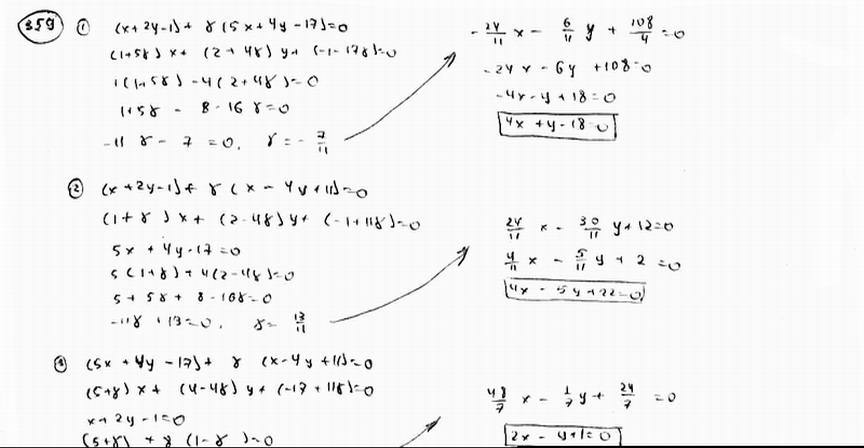 359
① (x+2y-1)+ γ(5x+4y-17)=0
(1+5γ)x+ (2+4γ)y+ (-1-17γ)=0
1(1+5γ)-4(2+4γ)=0
1+5γ - 8-16γ=0
-11γ-7=0, γ=-7/11
-24/11 x - 6/11 y + 108/4 =0
-24x-6y+108=0
-4x-y+18=0
4x+y-18=0
② (x+2y-1)+ γ(x-4y+11)=0
(1+γ)x+ (2-4γ)y+ (-1+11γ)=0
5x+4y-17=0
5(1+γ)+4(2-4γ)=0
5+5γ+8-16γ=0
-11γ+13=0, γ=13/11
24/11 x - 30/11 y+12=0
4/11 x - 5/11 y+2=0
4x-5y+22=0
③ (5x+4y-17)+ γ(x-4y+11)=0
(5+γ)x+ (4-4γ)y+ (-17+11γ)=0
x+2y-1=0
48/7 x - 1/7 y+ 24/7 =0
2x-y+1=0